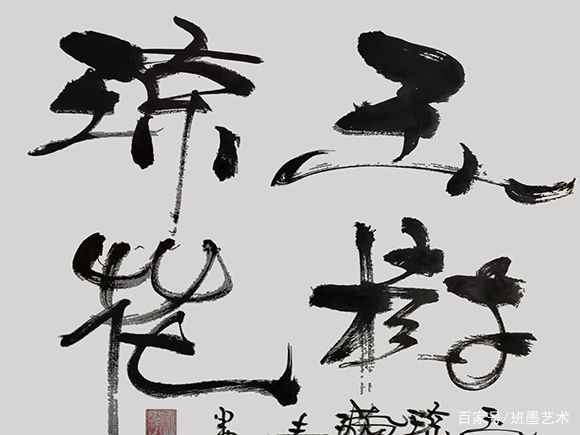 玉樹
琼花
百家号/班墨艺术